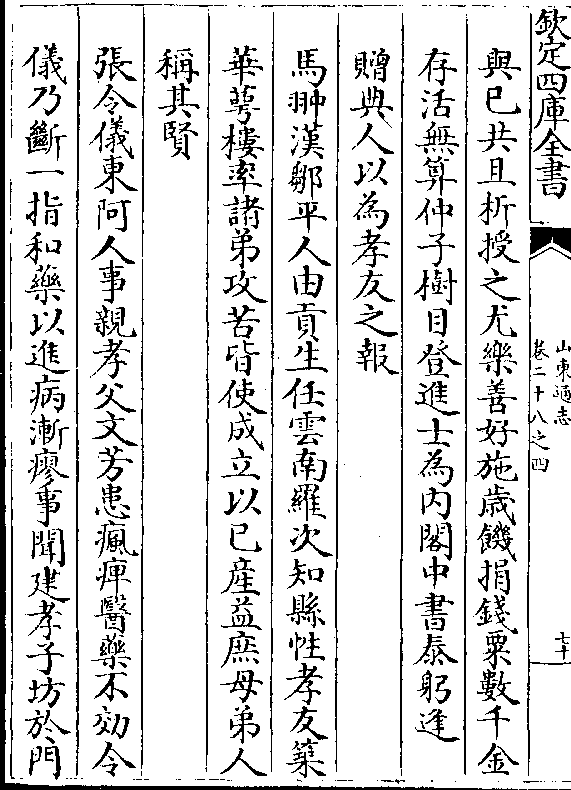 欽定四庫全書
山東通志
卷二十八之四
七十
與已共且析授之尤樂善好施歳饑捐錢粟數千金
存活無算仲子樹目登進士為内閣中書泰躬逢
贈典人以為孝友之報
馬翀漢鄒平人由貢生任雲南羅次知縣性孝友築
華萼樓率諸弟攻苦皆使成立以已産益庶母弟人
稱其賢
張令儀東阿人事親孝父文芳患瘋痺醫藥不効令
儀乃斷一指和藥以進病漸瘳事聞建孝子坊於門